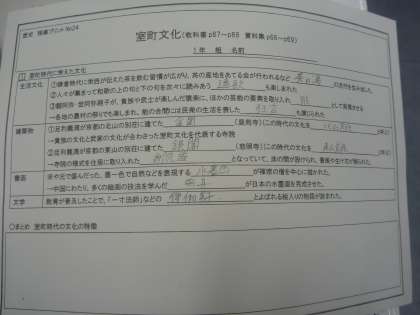 歴史 授業プリント No24
室町文化(教科書p67~p68 資料集p68~p69)
1年 組 名前
① 室町時代に栄えた文化
生活文化
①鎌倉時代に栄西が伝えた茶を飲む習慣が広がり、茶の産地をあてる会が行われるなど 茶の湯 の流行を生みました。
②人々が集まって和歌の上の句と下の句を次々に読みあう 連歌 も楽しまれた
③観阿弥・世阿弥親子が、貴族や武士が楽しんだ猿楽に、ほかの芸能の要素を取り入れ 能 として発展させる
→各地の農村の祭りでも楽しまれ、能の合間には民衆の生活を表した 狂言 も演じられた
建築物
①足利義満が京都の北山の別荘に建てた 金閣 (鹿苑寺)(この時代の文化を 北山文化
→貴族の文化と武家の文化が合わさった室町文化を代表する寺院
②足利義政が京都の東山の別荘に建てた 銀閣 (慈照寺)(この時代の文化を 東山文化
→寺院の様式を住居に取り入れた 書院造 となっていて、床の間が設けられ、書画や生け花が飾られた
書画
宋や元で盛んだった、墨一色で自然などを表現する 水墨画 が禅宗の僧を中心に描かれた。
→中国にわたり、多くの絵画の技法を学んだ 雪舟 が日本の水墨画を完成させた。
文学
教育が普及したことで、「一寸法師」などの 御伽草子 とよばれる絵入りの物語が読まれた。
○まとめ 室町時代の文化の特徴